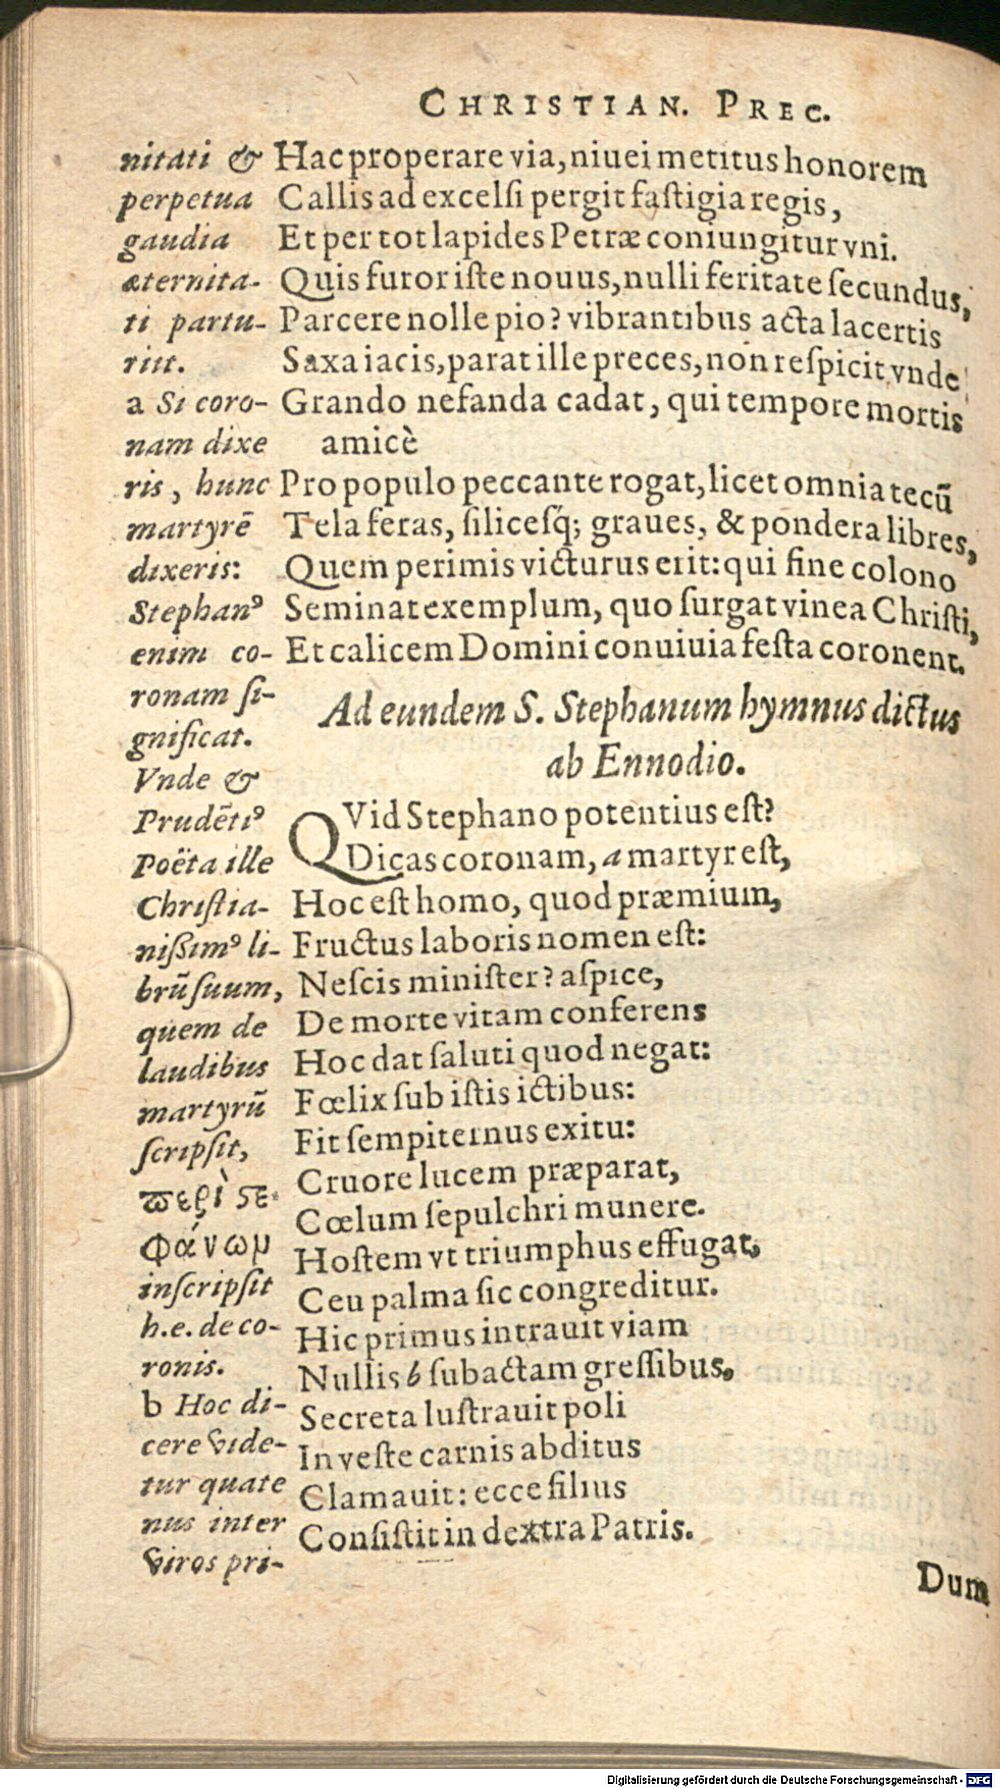 CHRISTIAN. PREC.
nitati &
perpetua
gaudia
æternita-
ti partu-
riit.
a Si coro-
nam dixe
ris, hunc
martyrē
dixeris:
Stephanꝰ
enim co-
ronam ſi-
gnificat.
Vnde &
Prudētiꝰ
Poëta ille
Chriſtia-
nißimꝰ li-
brū ſuum,
quem de
laudibus
martyrū
ſcripſit,
ϖερὶ ϛε-
Φάνωμ
inſcripſit
h.e. de co-
ronis.
b Hoc di-
cere vide-
tur quate
nus inter
viros pri-
Hac properare via, niuei metitus honorem
Callis ad excelſi pergit faſtigia regis,
Et per tot lapides Petræ coniungitur vni.
Quis furor iſte nouus, nulli feritate ſecundus,
Parcere nolle pio? vibrantibus acta lacertis
Saxa iacis, parat ille preces, non reſpicit vnde
Grando nefanda cadat, qui tempore mortis
amicè
Pro populo peccante rogat, licet omnia tecū
Tela feras, ſiliceſq; graues, & pondera libres,
Quem perimis victurus erit: qui ſine colono
Seminat exemplum, quo ſurgat vinea Chriſti,
Et calicem Domini conuiuia feſta coronent.
Ad eundem S. Stephanum hymnus dictus
ab Ennodio.
QVid Stephano potentius eſt?
Dicas coronam, a martyr eſt,
Hoc eſt homo, quod præmium,
Fructus laboris nomen eſt:
Neſcis miniſter? aſpice,
De morte vitam conferens
Hoc dat ſaluti quod negat:
Fœlix ſub iſtis ictibus:
Fit ſempiternus exitu:
Cruore lucem præparat,
Cœlum ſepulchri munere.
Hoſtem vt triumphus effugat,
Ceu palma ſic congreditur.
Hic primus intrauit viam
Nullis b ſubactam greſſibus,
Secreta luſtrauit poli
In veſte carnis abditus
Clamauit: ecce filius
Conſiſtit in dextra Patris.
Dum
Digitalisierung gefördert durch die Deutsche Forschungsgemeinschaft - DFG